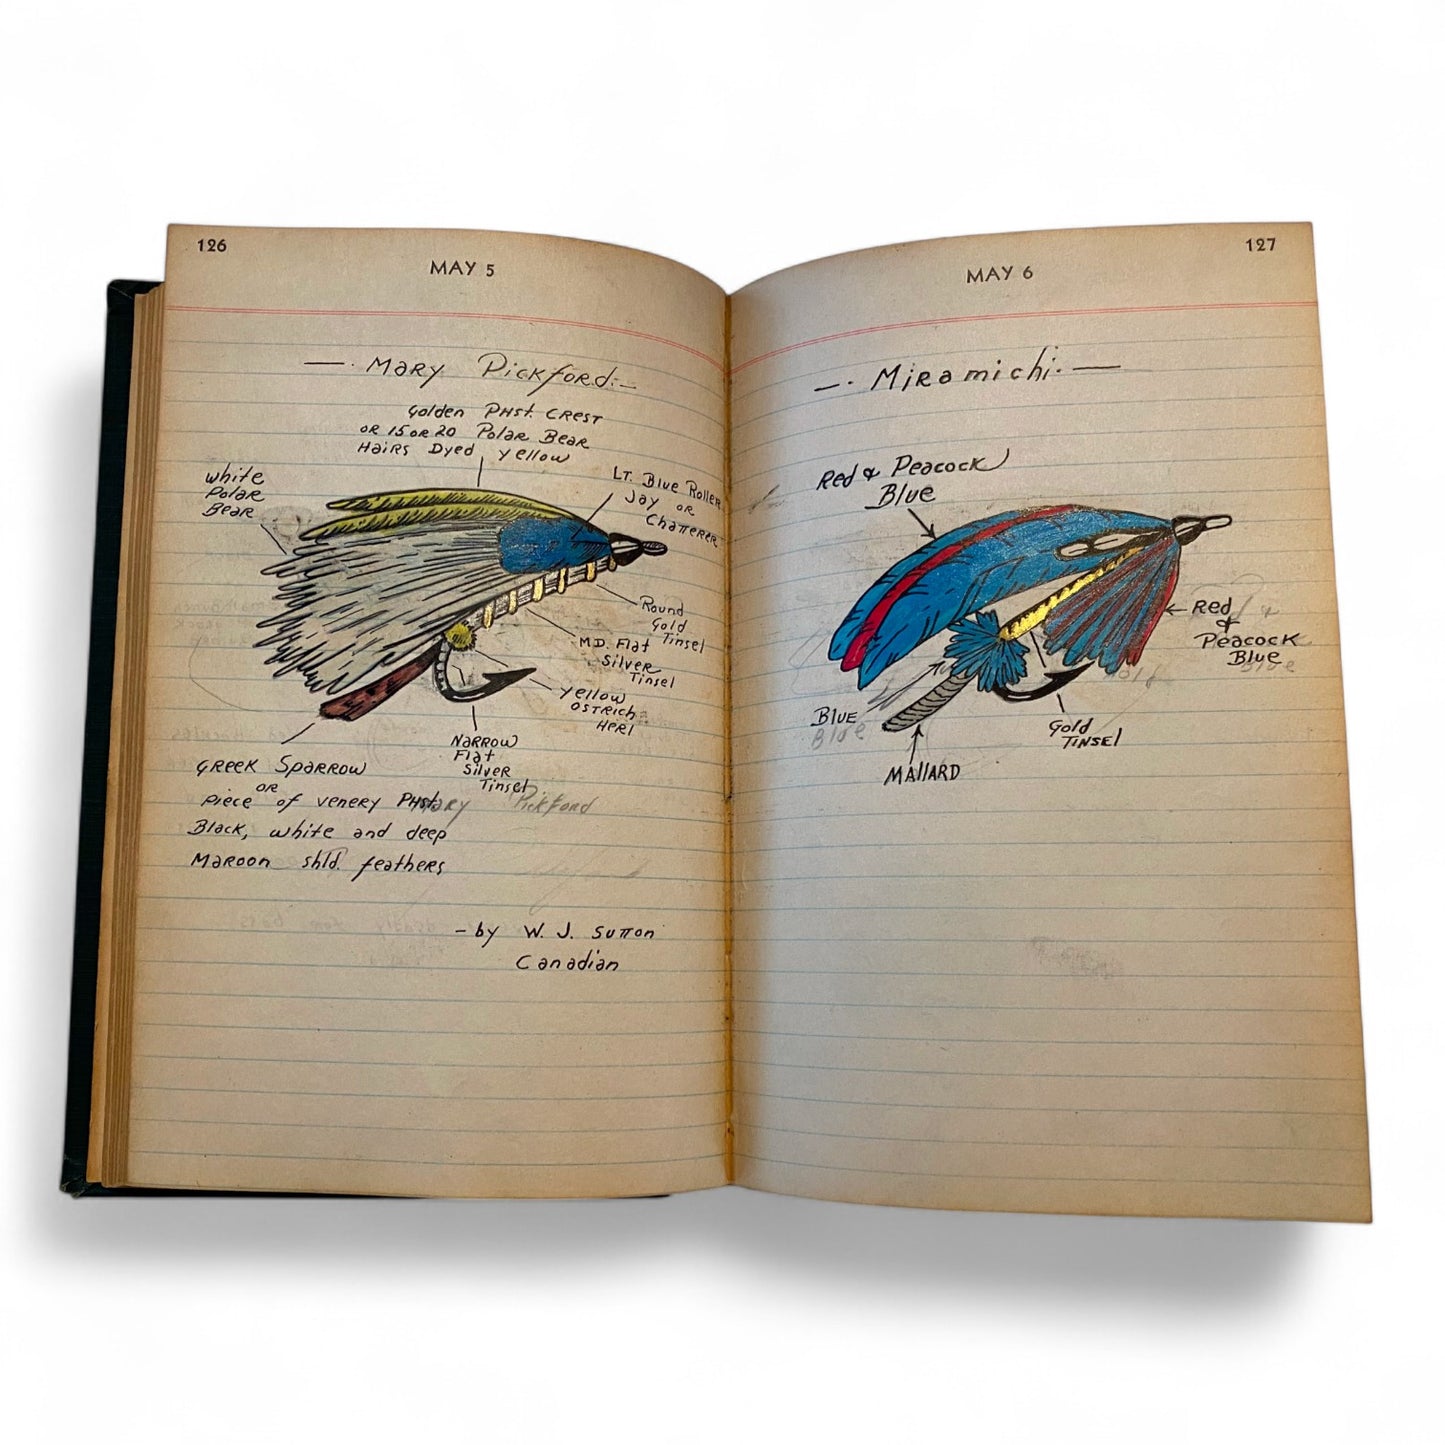 126
MAY 5
Mary Pickford:
Golden PHst. CREST
OR 15 OR 20 Polar Bear
Hairs Dyed yellow
White
Polar
Bear
LT. Blue Roller
Jay or
Chatterer
Round
Gold
Tinsel
MD. Flat
Silver
Tinsel
Yellow
OSTRICH
Herl
Narrow
Flat
Silver
Tinsel
GREEK SPARROW
OR
piece of venery PHst.
Pickford
Black, white and deep
MAROON shld. feathers
- by W. J. Sutton
Canadian
127
MAY 6
Miramichi.
Red & Peacock
Blue
Red
&
Peacock
Blue
Blue
Blue
Blue
Gold
TINSEL
MAllARD